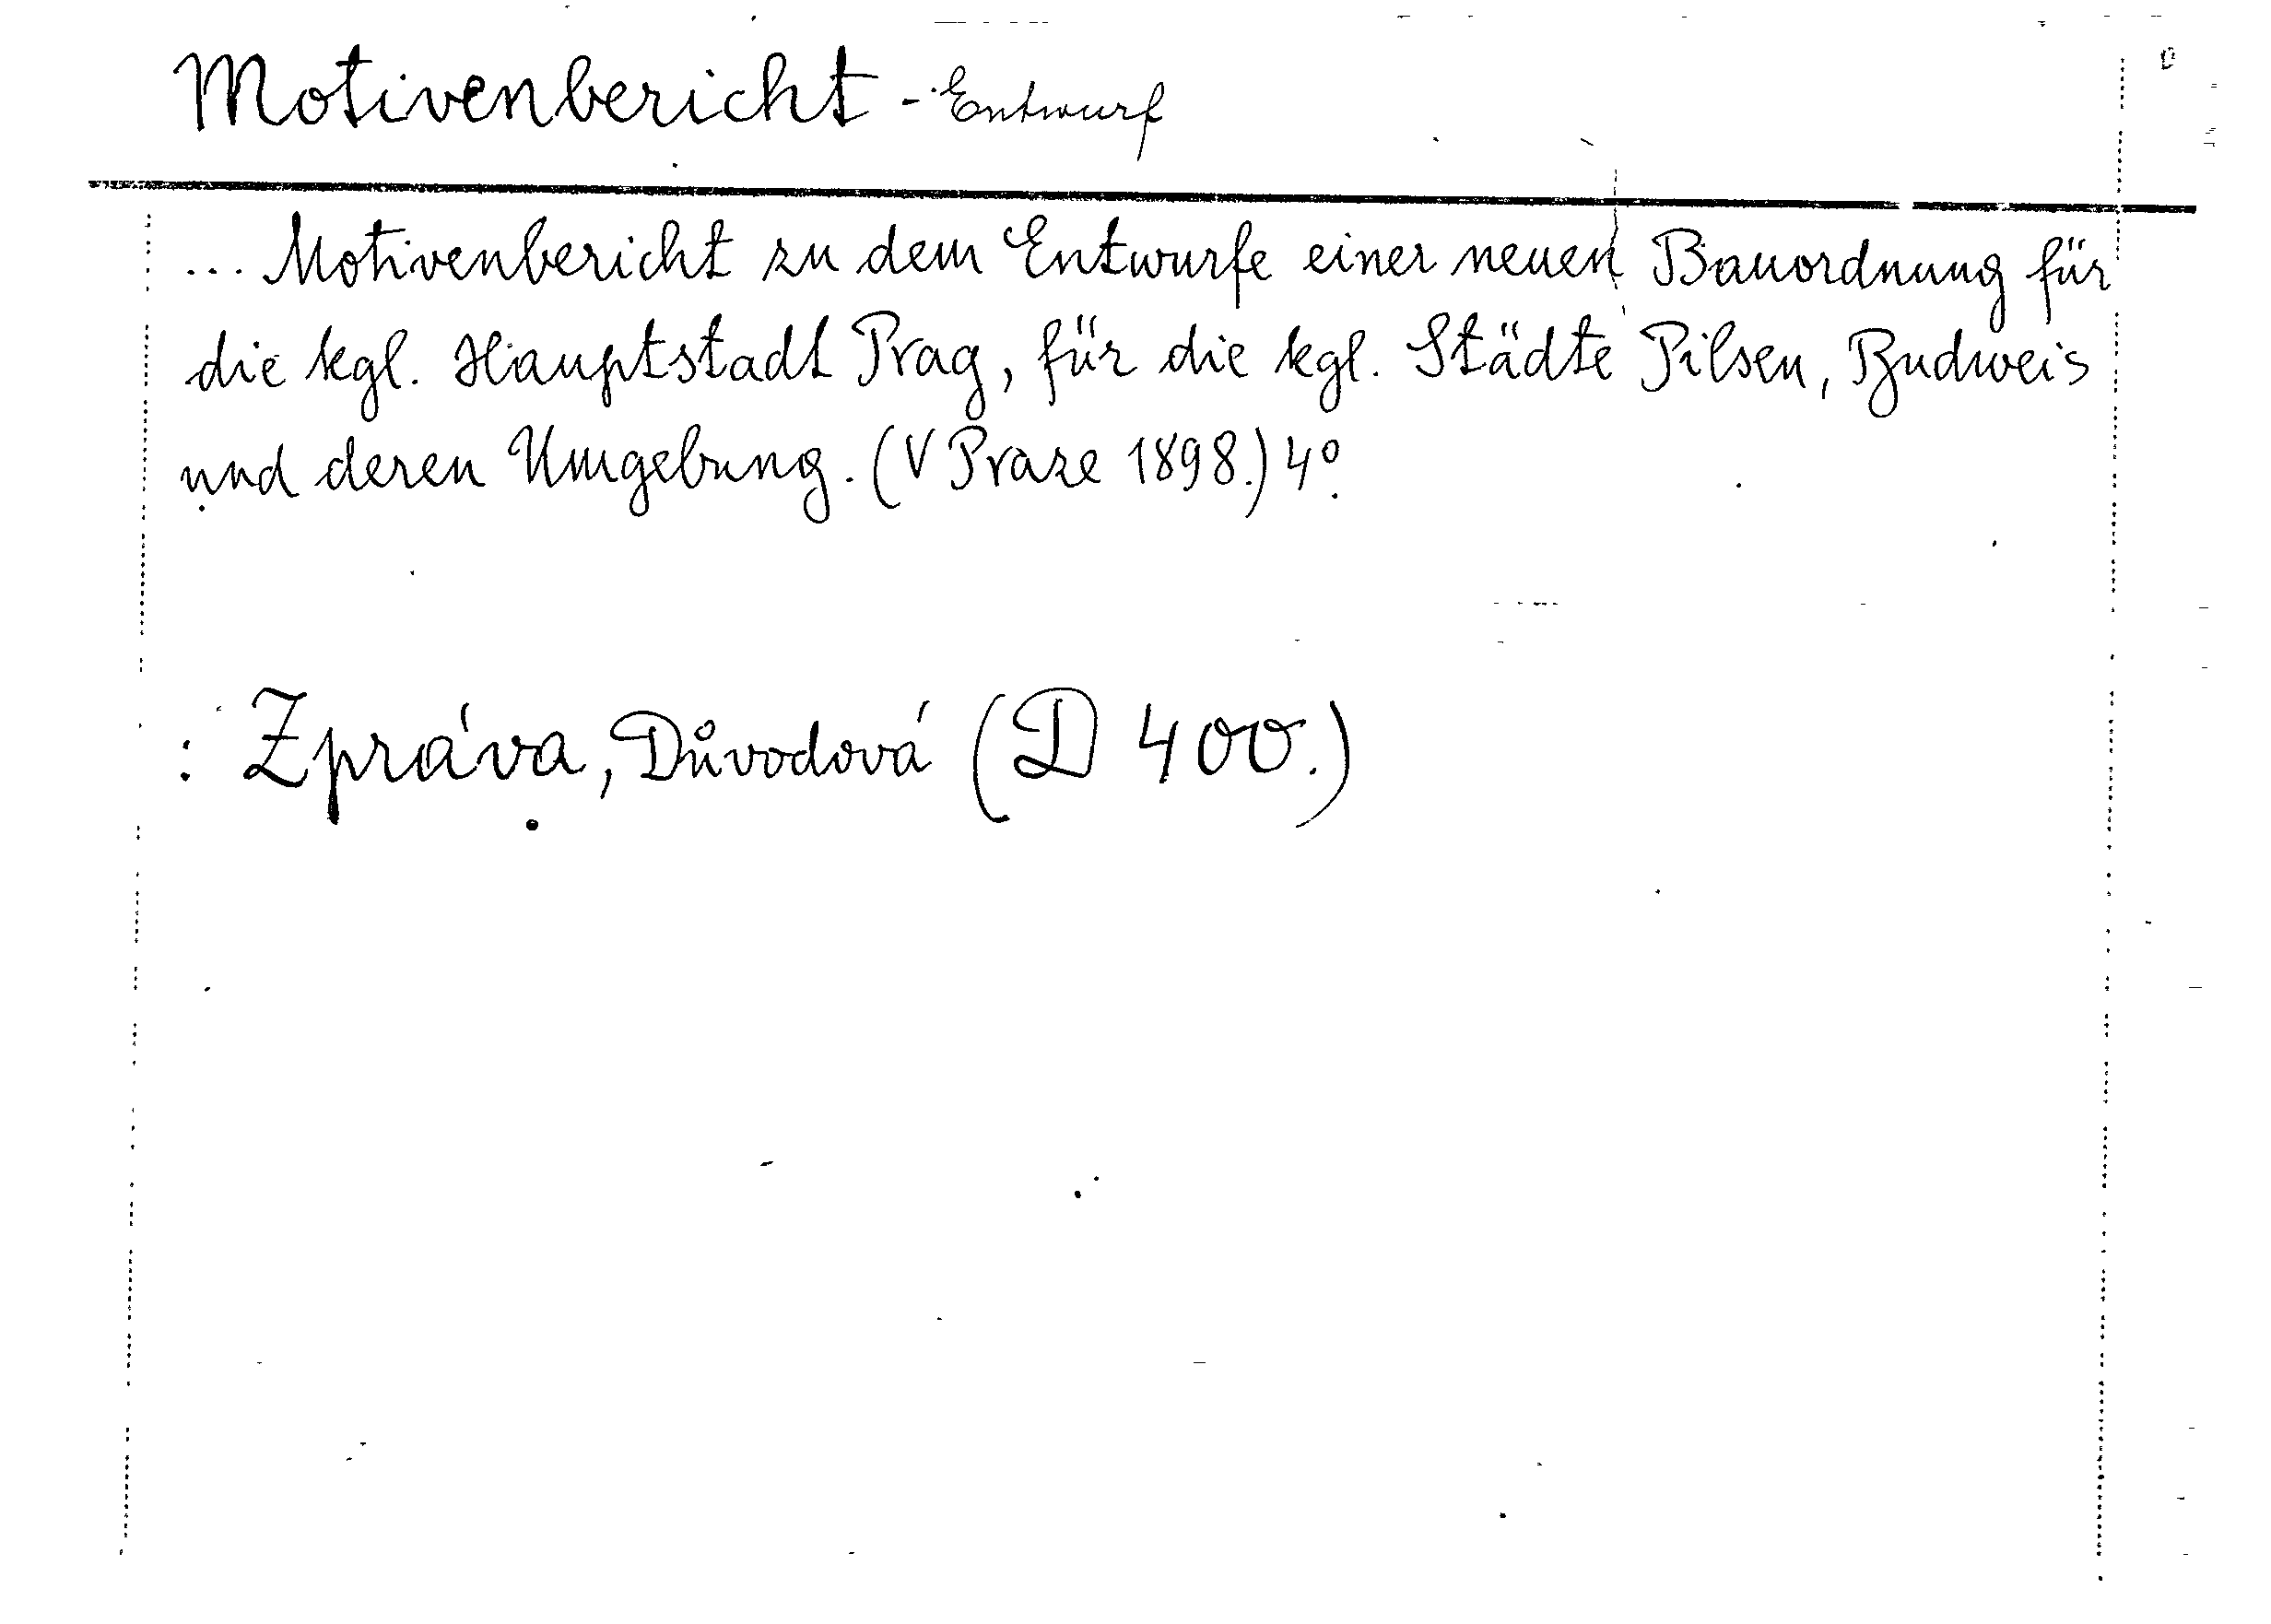 Motivenbericht - Entwurf
... Motivenbericht zu dem Entwurfe einer neuen Bauordnung für
die kgl. Hauptstadt Prag, für die kgl. Städte Pilsen, Budweis
und deren Umgebung. (V Praze 1898.) 4º.
: Zpráva, Důvodová (D 400.)